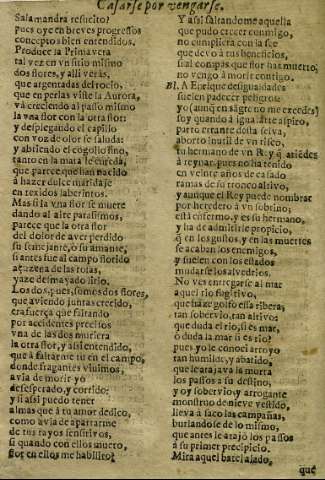 Casarse por vengarse.
Salamandra resuelto?
pues oye en breves progressos
conceptos bien entendidos.
Produce la Primavera
tal vez en vn sitio mismo
dos flores, y alli verás,
que argentadas de rocio,
que en perlas viste la Aurora,
và creciendo al passo mismo
la vna flor con la otra flor:
y desplegando el capillo
con voz de olor se saluda:
y abriendo el cogollo fino,
tanto en la mata se enreda,
que parece que han nacido
à hazer dulce maridaje
en texidos laberintos.
Mas si la vna flor se muere
dando al aire parasismos,
parece que la otra flor
del dolor de aver perdido
su semejante, ò su amante,
si antes fue al campo florido
açuzena de las rosas,
yaze desmayado lirio.
Los dos, pues, somos dos flores,
que aviendo juntas crecido,
era fuerça que faltando
por accidentes precisos
vna de las dos muriera
la otra flor, y assi entendido,
que à faltarme tu en el campo,
donde fragantes viuimos,
avia de morir yo
desesperado, y corrido:
y si assi puedo tener
almas que à tu amor dedico,
como avia de apartarme
de tus rayos sensitivos,
si quando con ellos muero,
flor en ellos me habilito?
Y assi faltandome aquella
que pudo crecer conmigo,
no cumpliera con la fee
que devo à tus beneficios,
si al compàs que flor has muerto,
no vengo à morir contigo.
Bl. A Enrique desigualdades
suelen padecer peligros:
yo (aunque en sangre no me excedes)
soy quando à igualarte aspiro,
parto errante desta selva,
aborto inutil de vn risco,
tu hermano de vn Rey, q̃
à reynar, pues no ha tenido
en veinte años de casado
ramas de su tronco altivo,
y aunque el Rey puede nombrar
por heredero à vn sobrino;
està enfermo, y es su hermano,
y ha de admitirle propicio,
q̃ en los gustos, y en las muertes
se acaban los enemigos,
y suelen con los estados
mudarse los alvedrios.
No ves entregarse al mar
aquel rio fugitivo,
que haze golfo essa ribera,
tan sobervio, tan altivo:
que duda el rio, si es mar,
ò duda la mar si es rio?
pues yo le conoci arroyo
tan humilde, y abatido,
que le atajava la murta
los passos a su destino,
y oy sobervio, y arrogante
monstruo de nieve vestido,
lleva à saco las campañas,
burlandose de lo mismo,
que antes le atajó los passos
à su primer precipicio.
Mira aquel batel alado,
que